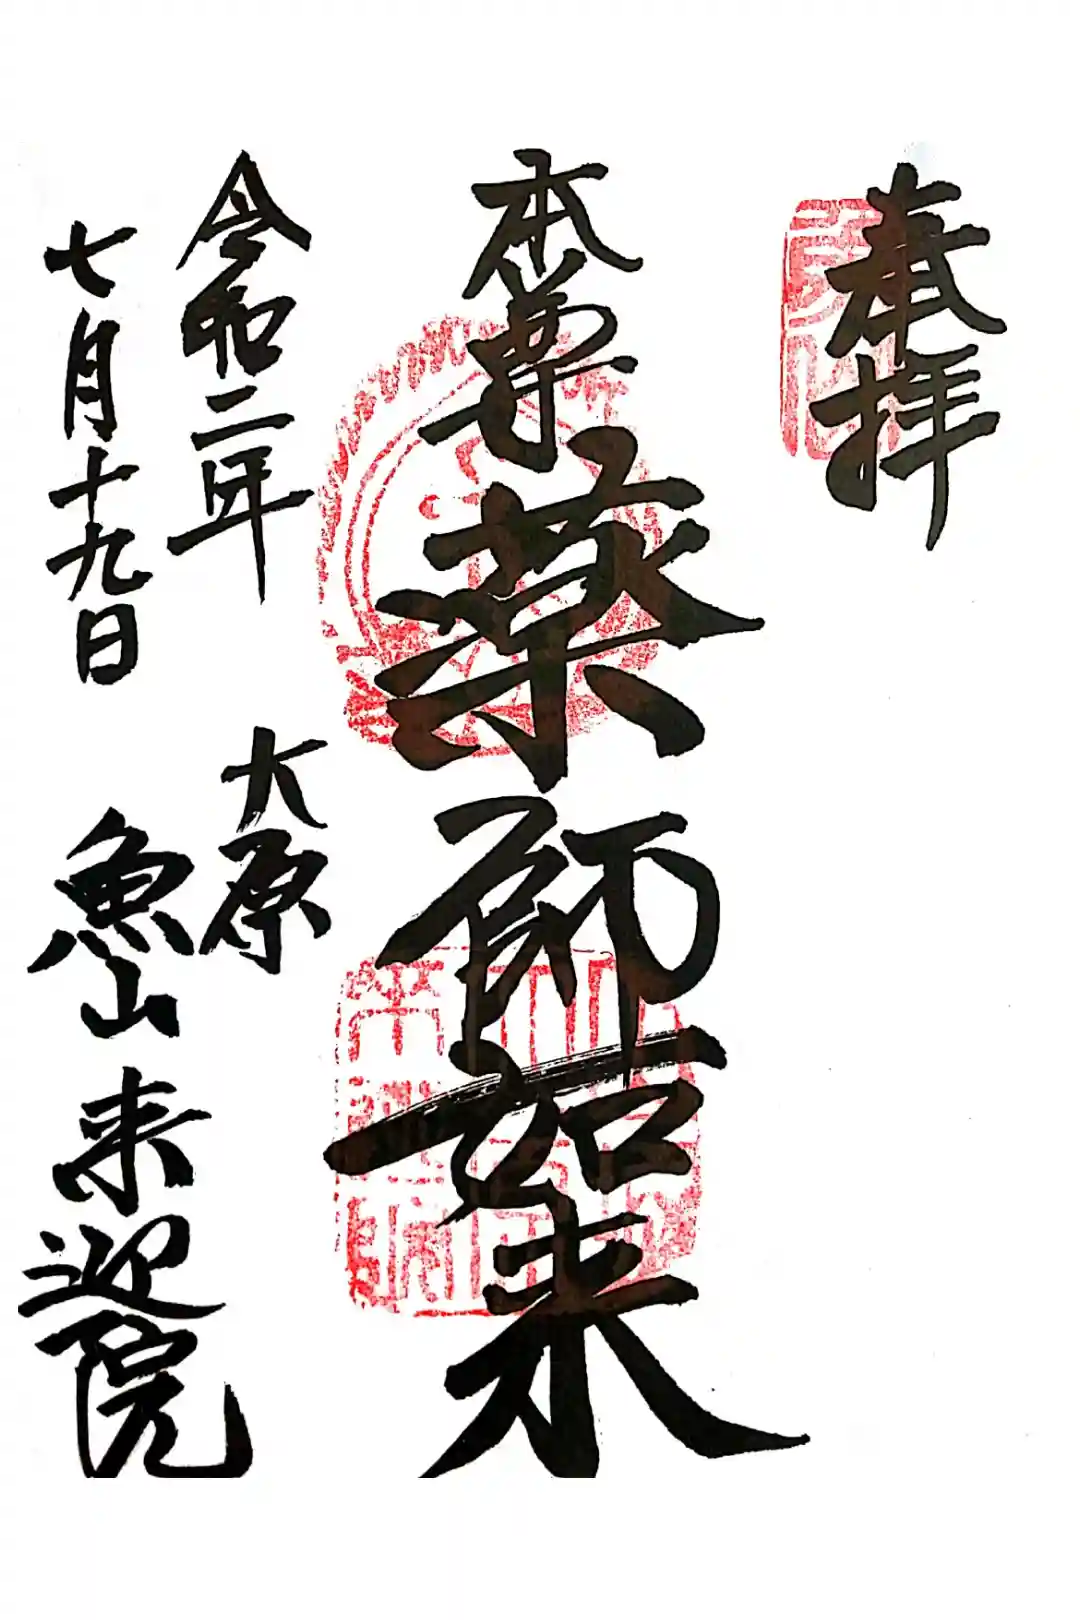 奉拝
本尊薬師如来
大原
令和二年
七月十九日
魚山来迎院